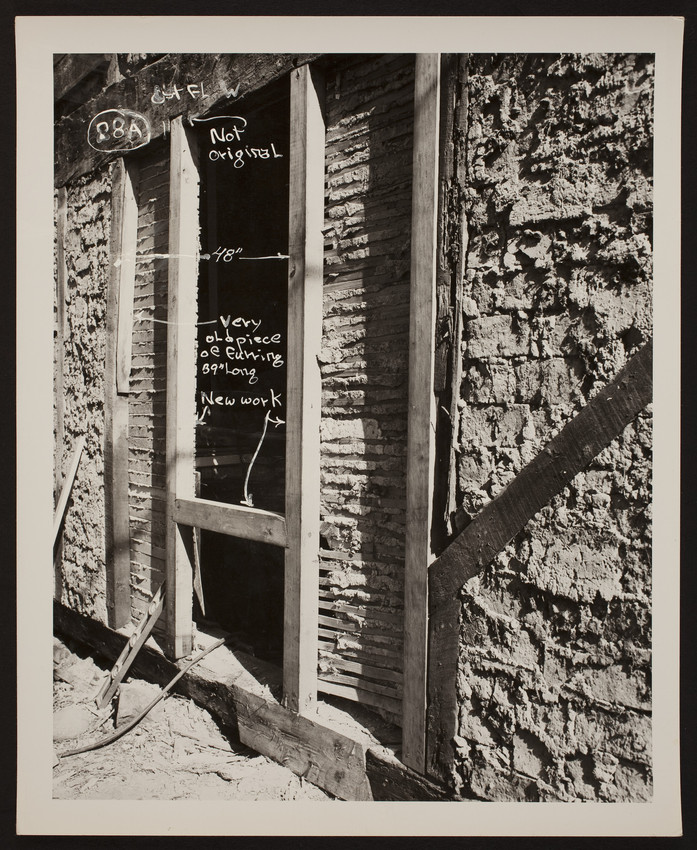 28A
Not
original
48"
Very
old piece
of furring
39" Long
New work